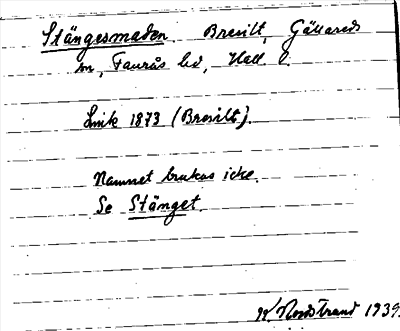 Stängesmaden. Bresilt, Gällareds
sn, Faurås hd, Hall. l.
Lmk 1873 (Bresilt).
Namnet brukas icke.
Se Stänget.
Nordstrand 1939.